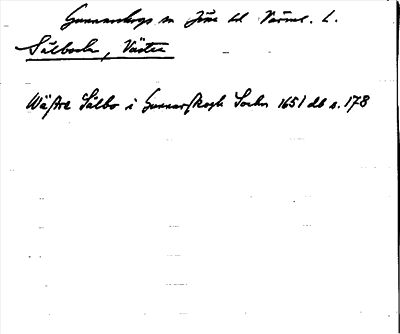 Gunnarskogs sn Jösse hd Värml. l.
Sälboda, Västra
Wästre Sälbo i Gunnarskogh Sochn 1651 db s. 178